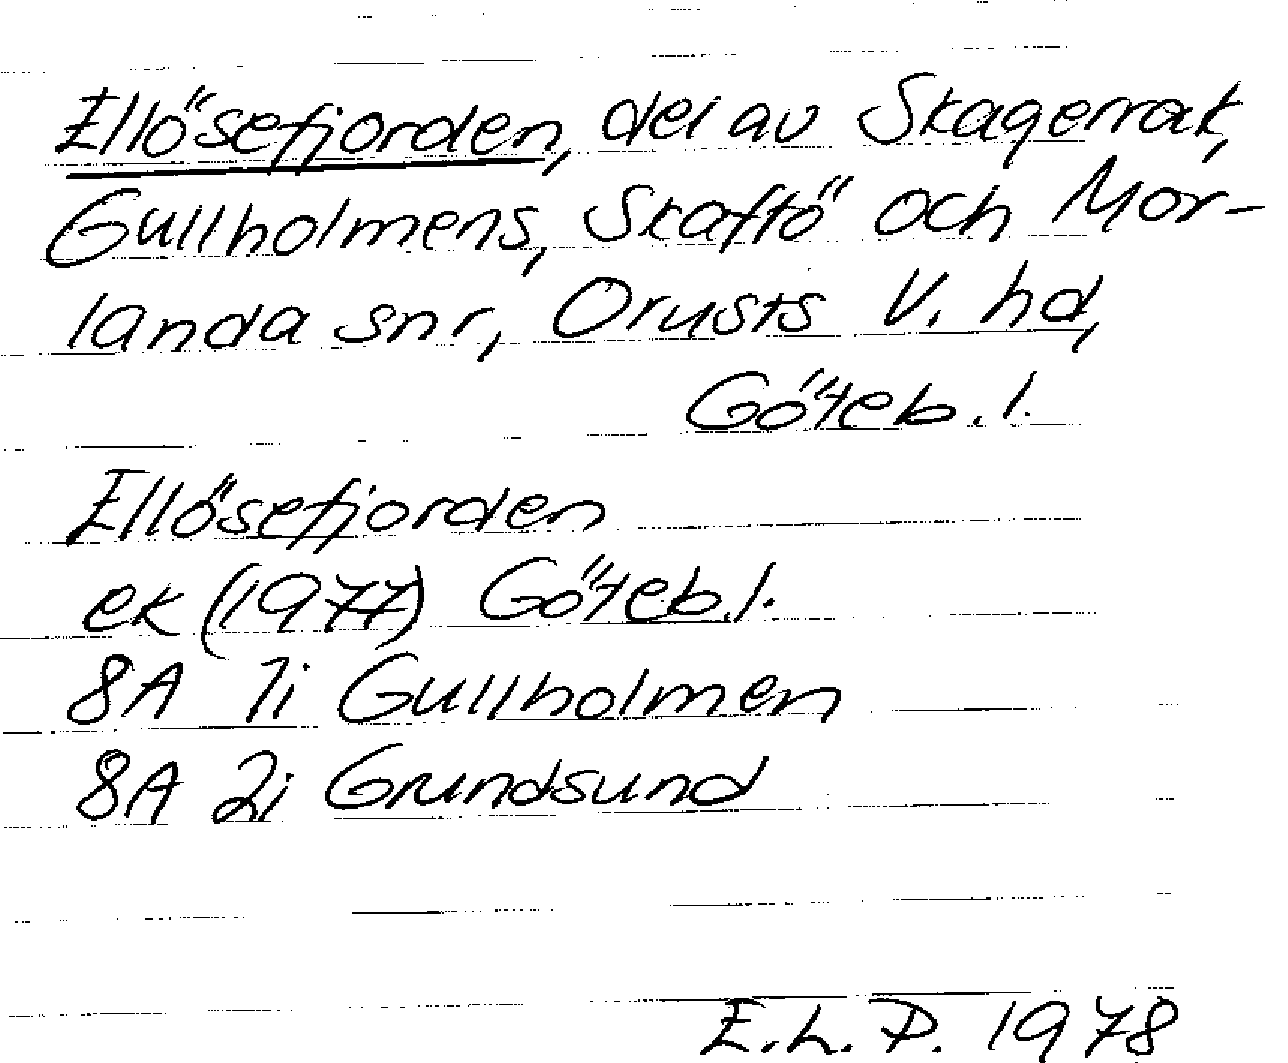 Ellösefjorden, del av Skagerrak,
Gullholmens, Skaftö och Mor-
landa snr, Orusts V. hd,
Göteb. l.
Ellösefjorden
ek (1977) Göteb. l.
8A 1i Gullholmen
8A 2i Grundsund
E. L. P. 1978